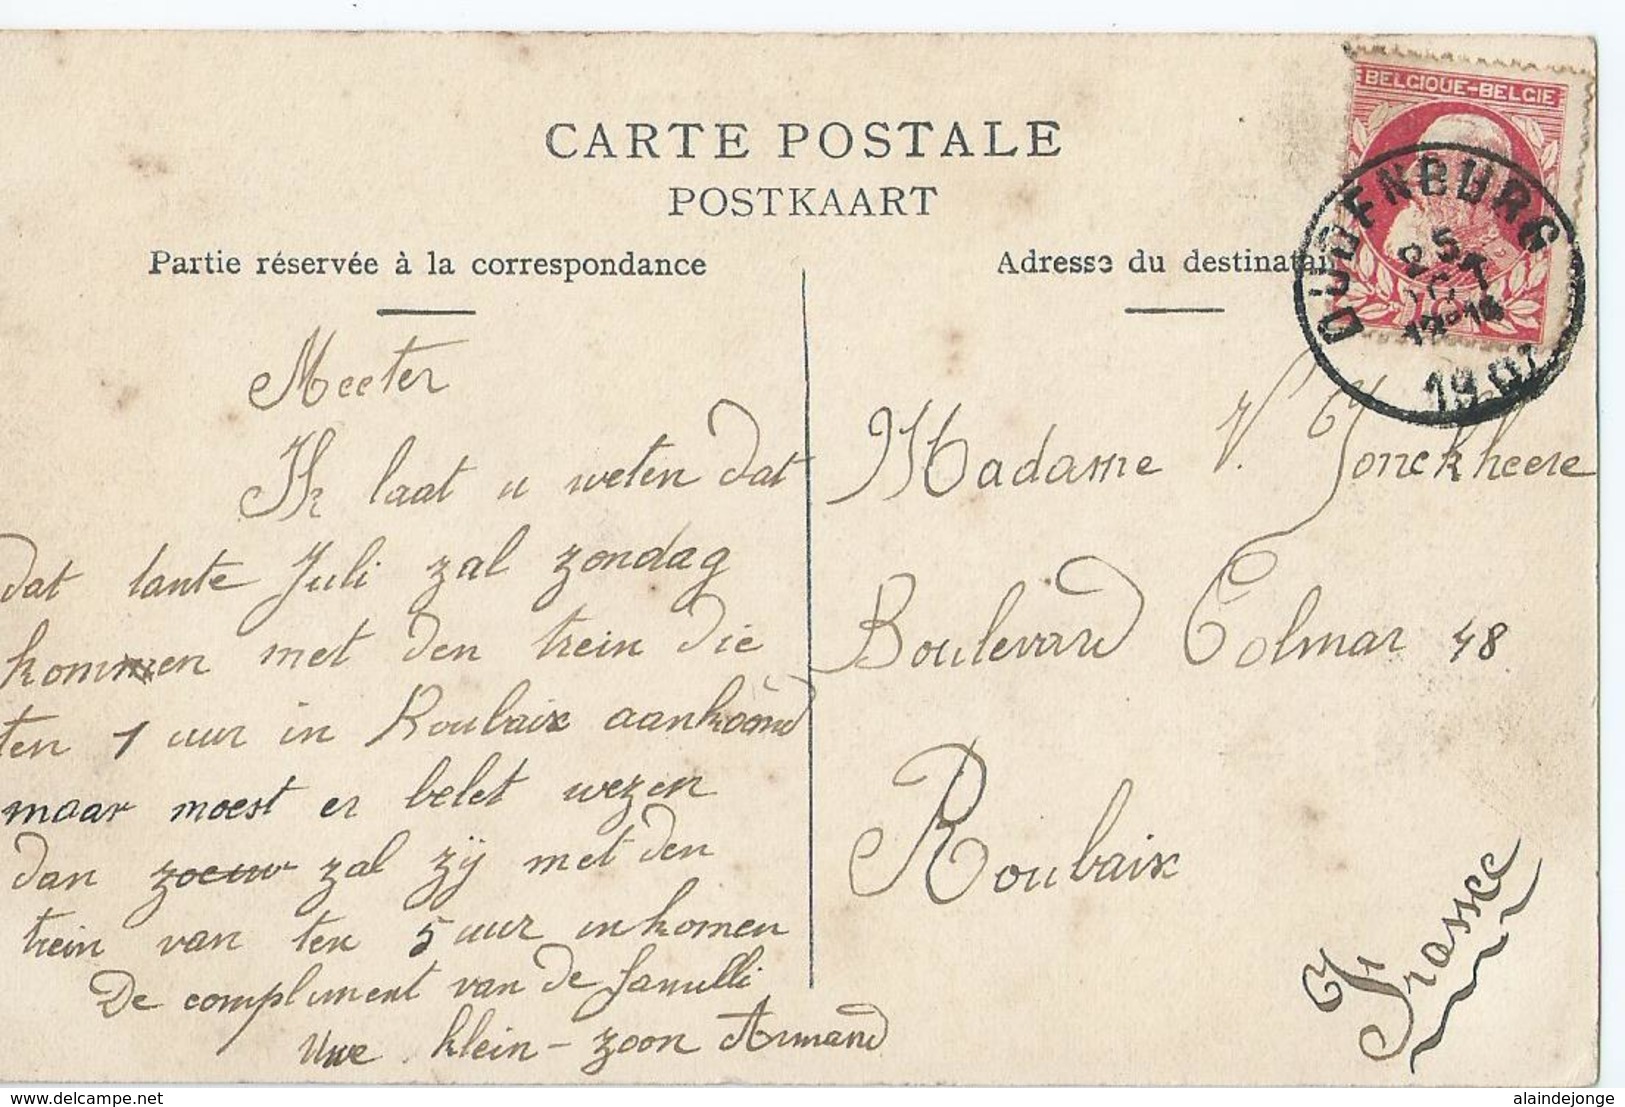 CARTE POSTALE
POSTKAART
Partie réservée à la correspondance
Meeter
Ik laat u weten dat
dat tante Juli zal zondag
kommen met den trein die
ten 1 uur in Roubaix aankoomd
maar moest er belet wezen
dan zal zij met den
trein van ten 5 uur inkomen
De compliment van de famılli
Uwe klein-zoon Armand
Adresse du destinatai
BELGIQUE-BELGIE
OUDENBURG
25
OCT
1907
Madame V. Jonckheere
Boulevard Colmar 48
Roubaix
France
delcampe.net
alaindejonge